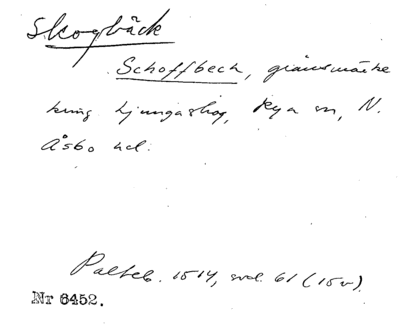 Skogbäck
Schoffbeck, gränsmärke
kring Ljungaskog, Rya sn, N.
Åsbo hd.
Palteb. 1514, sid. 61 (15v).
Nr 6452.